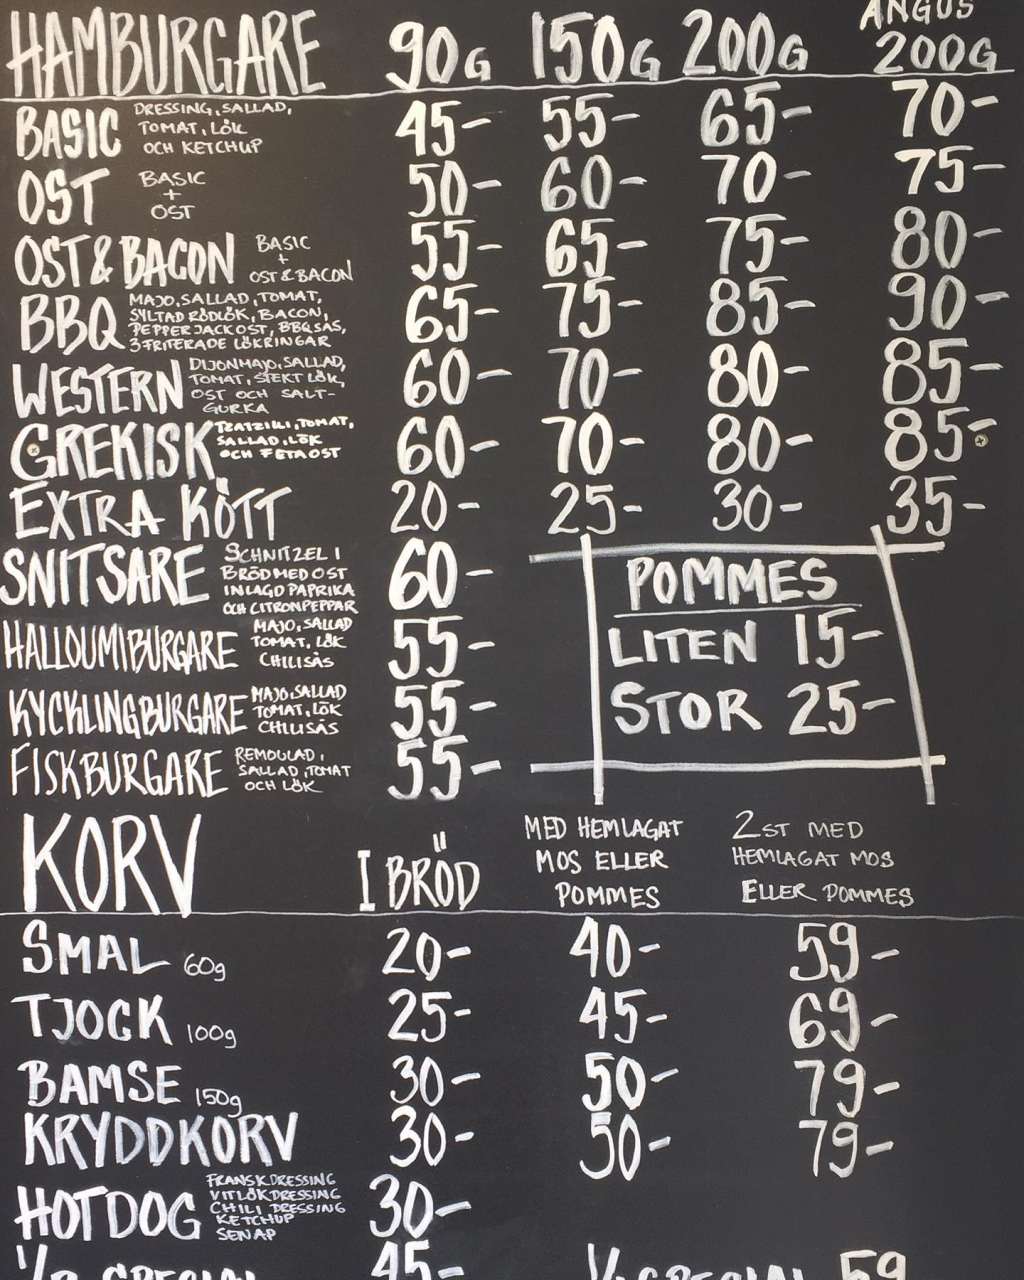 ANGUS
HAMBURGARE 90G 150G 200G 200G
BASIC DRESSING, SALLAD, 45- 55- 65- 70-
TOMAT, LÖK
OCH KETCHUP
OST BASIC 50- 60- 70- 75-
+
OST
OST & BACON BASIC 55- 65- 75- 80-
+
OST & BACON
BBQ MAJO, SALLAD, TOMAT, 65- 75- 85- 90-
SYLTAD RÖDLÖK, BACON,
PEPPER JACK OST, BBQ SÅS,
3 FRITERADE LÖKRINGAR
WESTERN DIJONMAJO, SALLAD, 60- 70- 80- 85-
TOMAT, STEKT LÖK,
OST OCH SALT-
GURKA
GREKISK TZATZIKI, TOMAT, 60- 70- 80- 85-
SALLAD, LÖK
OCH FETAOST
EXTRA KÖTT 20- 25- 30- 35-
SNITSARE SCHNITZEL I 60-
BRÖD MED OST
INLAGD PAPRIKA
OCH CITRONPEPPAR
POMMES
LITEN 15-
STOR 25-
HALLOUMIBURGARE MAJO, SALLAD 55-
TOMAT, LÖK
CHILISÅS
KYCKLINGBURGARE MAJO, SALLAD 55-
TOMAT, LÖK
CHILISÅS
FISKBURGARE REMOULAD, 55-
SALLAD, TOMAT
OCH LÖK
KORV I BRÖD
MED HEMLAGAT
MOS ELLER
POMMES
2ST MED
HEMLAGAT MOS
ELLER POMMES
SMAL 60g 20- 40- 59-
TJOCK 100g 25- 45- 69-
BAMSE 150g 30- 50- 79-
KRYDDKORV 30- 50- 79-
HOTDOG FRANSK DRESSING 30-
VITLÖKDRESSING
CHILI DRESSING
KETCHUP
SENAP
SPECIAL 45- SPECIAL 59